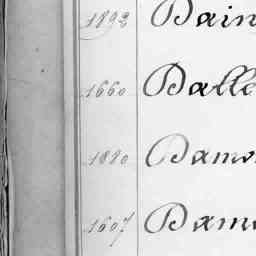 1892 Bain
1660 Balle
1820 Bamo
1607 Bamo